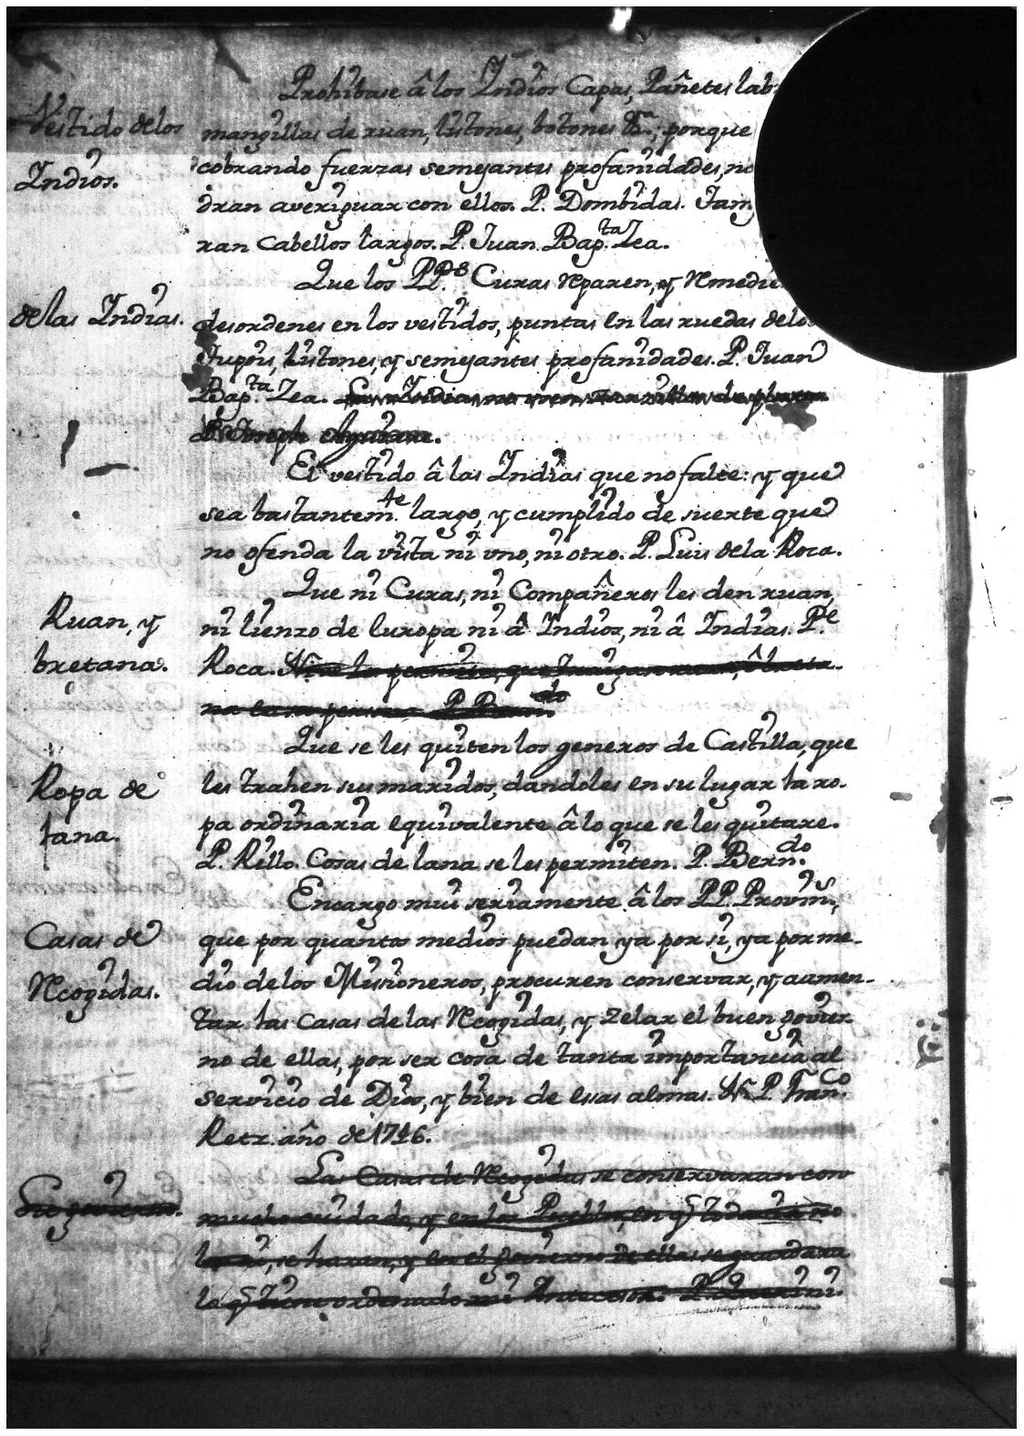 Prohibase â los Indios Capas, Pañetes lab
Vestido de los
Indios.
mangillas de ruan, listones, botones &c., porque
cobrando fuerzas semejantes profanidades, no
dran averiguar con ellos. P. Dombidas. Tam
ran Cabellos largos. P. Juan Bap.ta Zea.
de las Indias.
Que los PP.es Curas Reparen, y Remedie
desordenes en los vestidos, puntas en las ruedas delos
Jupoũs, listones, y semejantes profanidades. P. Juan
Bap.ta Zea.
El vestido â las Indias que no falte: y que
sea bastantem.te largo, y cumplido de suerte que
no ofenda la vista ni uno, ni otro. P. Luis de la Roca.
Ruan, y
bretana.
Que ni Curas, ni Compañeros les den ruan,
ni lienzo de Europa ni â Indios, ni â Indias. P.e
Roca.
Ropa de
lana.
Que se les quiten los generos de Castilla, que
les trahen sus maridos, dandoles en su lugar la ro-
pa ordinaria equivalente â lo que se les quitare.
P. Rillo. Cosas de lana se les permiten. P. Bern.do
Casas de
Recogidas.
Encargo mui seriamente â los PP. Provin.s,
que por quantos medios puedan ya por si, ya por me-
dio de los Misioneros, procuren conservar, y aumen-
tar las Casas de las Recogidas, y Zelar el buen govier
no de ellas, por ser cosa de tanta importancia al
servicio de Dios, y bien de esas almas. N. P. Fran.co
Retz. año de 1746.
Las Casas de Recogidas se conservaran con
Su govierno.
mucho cuidado, y en los Pueblos, en q̃ todavia no
las ai, se haran, y en el govierno de ellas se guardara
lo q̃ tiene ordenado mi Antecesor. P. Querini